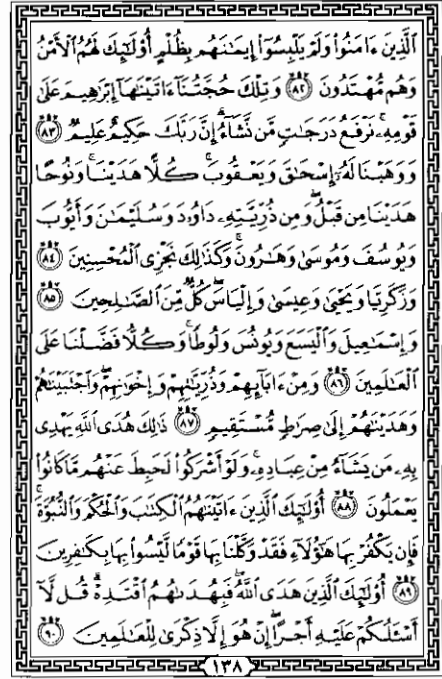 ٱلَّذِينَ ءَامَنُواْ وَلَمۡ يَلۡبِسُوٓاْ إِيمَٰنَهُم بِظُلۡمٍ أُوْلَٰٓئِكَ لَهُمُ ٱلۡأَمۡنُ
وَهُم مُّهۡتَدُونَ ٨٢ وَتِلۡكَ حُجَّتُنَآ ءَاتَيۡنَٰهَآ إِبۡرَٰهِيمَ عَلَىٰ
قَوۡمِهِۦۚ نَرۡفَعُ دَرَجَٰتٖ مَّن نَّشَآءُۗ إِنَّ رَبَّكَ حَكِيمٌ عَلِيمٞ ٨٣
وَوَهَبۡنَا لَهُۥٓ إِسۡحَٰقَ وَيَعۡقُوبَۚ كُلًّا هَدَيۡنَاۚ وَنُوحًا
هَدَيۡنَا مِن قَبۡلُۖ وَمِن ذُرِّيَّتِهِۦ دَاوُۥدَ وَسُلَيۡمَٰنَ وَأَيُّوبَ
وَيُوسُفَ وَمُوسَىٰ وَهَٰرُونَۚ وَكَذَٰلِكَ نَجۡزِي ٱلۡمُحۡسِنِينَ ٨٤
وَزَكَرِيَّا وَيَحۡيَىٰ وَعِيسَىٰ وَإِلۡيَاسَۖ كُلّٞ مِّنَ ٱلصَّٰلِحِينَ ٨٥
وَإِسۡمَٰعِيلَ وَٱلۡيَسَعَ وَيُونُسَ وَلُوطٗاۚ وَكُلّٗا فَضَّلۡنَا عَلَى
ٱلۡعَٰلَمِينَ ٨٦ وَمِنۡ ءَابَآئِهِمۡ وَذُرِّيَّٰتِهِمۡ وَإِخۡوَٰنِهِمۡۖ وَٱجۡتَبَيۡنَٰهُمۡ
وَهَدَيۡنَٰهُمۡ إِلَىٰ صِرَٰطٖ مُّسۡتَقِيمٖ ٨٧ ذَٰلِكَ هُدَى ٱللَّهِ يَهۡدِي
بِهِۦ مَن يَشَآءُ مِنۡ عِبَادِهِۦۚ وَلَوۡ أَشۡرَكُواْ لَحَبِطَ عَنۡهُم مَّا كَانُواْ
يَعۡمَلُونَ ٨٨ أُوْلَٰٓئِكَ ٱلَّذِينَ ءَاتَيۡنَٰهُمُ ٱلۡكِتَٰبَ وَٱلۡحُكۡمَ وَٱلنُّبُوَّةَۚ
فَإِن يَكۡفُرۡ بِهَا هَٰٓؤُلَآءِ فَقَدۡ وَكَّلۡنَا بِهَا قَوۡمٗا لَّيۡسُواْ بِهَا بِكَٰفِرِينَ
٨٩ أُوْلَٰٓئِكَ ٱلَّذِينَ هَدَى ٱللَّهُۖ فَبِهُدَىٰهُمُ ٱقۡتَدِهۡۗ قُل لَّآ
أَسۡـَٔلُكُمۡ عَلَيۡهِ أَجۡرًاۖ إِنۡ هُوَ إِلَّا ذِكۡرَىٰ لِلۡعَٰلَمِينَ ٩٠
١٣٨